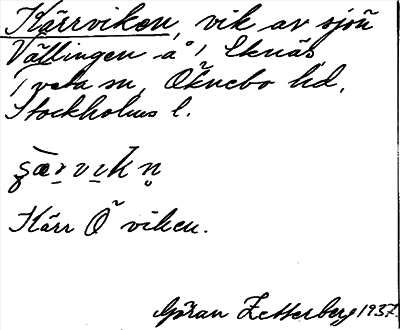 Kärrviken, vik av sjön
Vällingen å i Eknäs,
Tveta sn, Öknebo hd,
Stockholms l.
Kärr Ö viken.
Göran Zetterberg 1937.